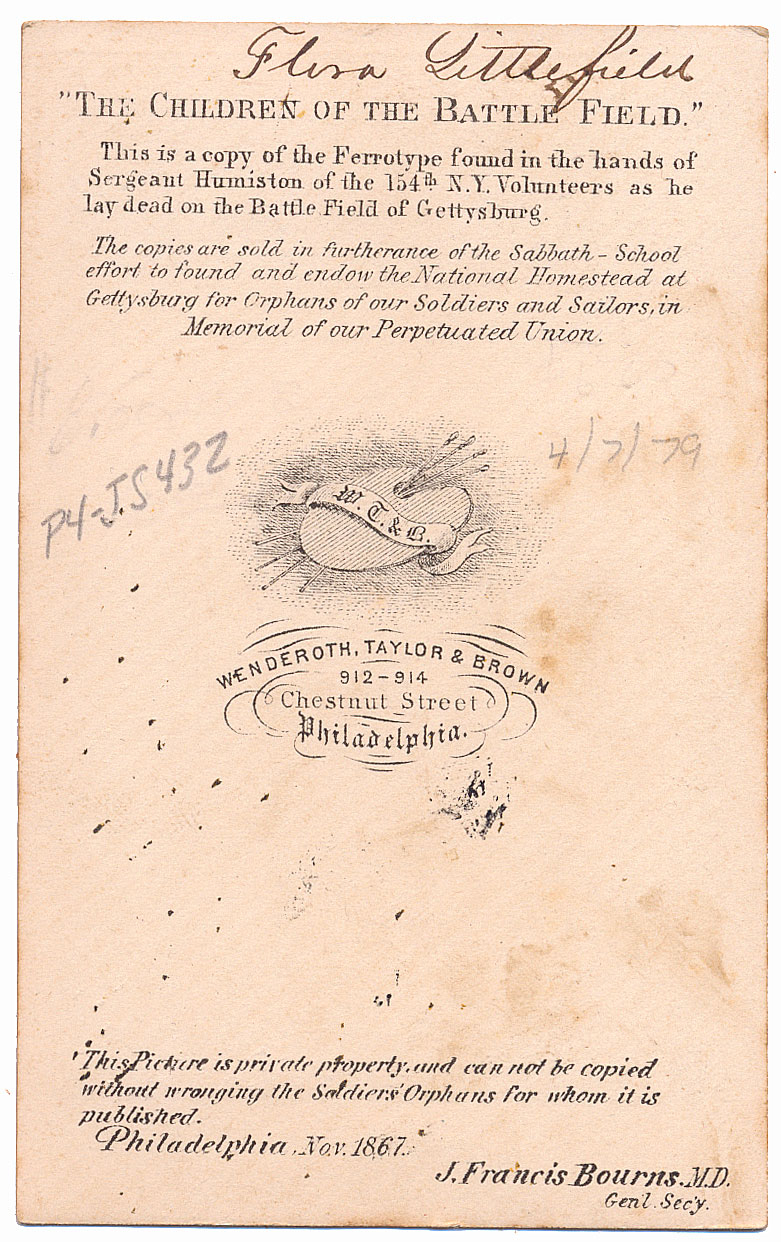 Flora Littlefield
"THE CHILDREN OF THE BATTLE FIELD."
This is a copy of the Ferrotype found in the hands of
Sergeant Humiston of the 154th N.Y. Volunteers as he
lay dead on the Battle Field of Gettysburg.
The copies are sold in furtherance of the Sabbath-School
effort to found and endow the National Homestead at
Gettysburg for Orphans of our Soldiers and Sailors, in
Memorial of our Perpetuated Union.
4/7/79
P4-JS432
W. T. & B.
WENDEROTH, TAYLOR & BROWN
912-914
Chestnut Street
Philadelphia.
This Picture is private property, and can not be copied
without wronging the Soldiers' Orphans for whom it is
published.
Philadelphia, Nov. 1867.
J. Francis Bourns, M.D.
Genl. Sec'y.